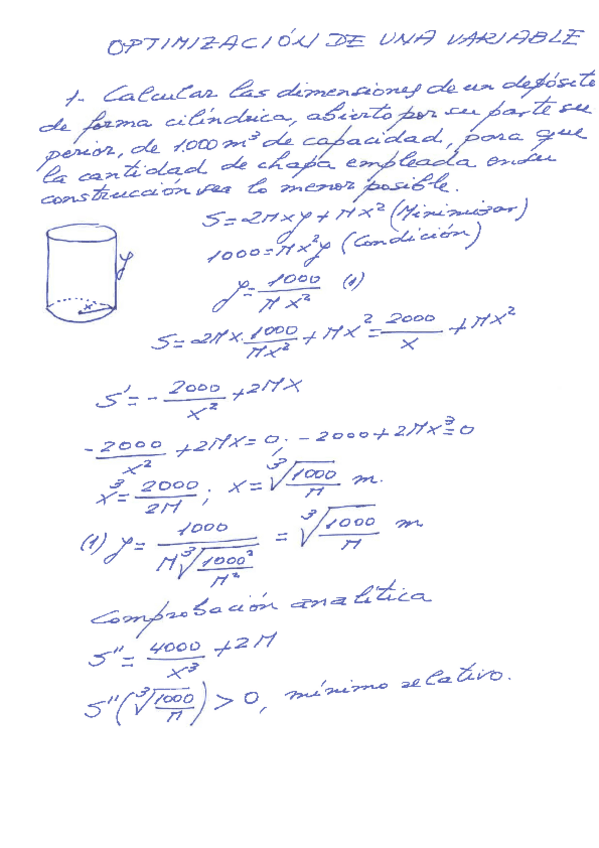 OPTIMIZACIÓN DE UNA VARIABLE
1- Calcular las dimensiones de un depósito
de forma cilíndrica, abierto por su parte su
perior, de 1.000 m³ de capacidad, para que
la cantidad de chapa empleada en su
construcción sea lo menor posible.
S = 2πxy + πx² (Minimizar)
1000 = πx²y (Condición)
y
x
y = 1000/πx² (1)
S = 2πx · 1000/πx² + πx² = 2000/x + πx²
S' = - 2000/x² + 2πx
- 2000/x² + 2πx = 0; - 2000 + 2πx³ = 0
x³ = 2000/2π ; x = ∛(1000/π) m.
(1) y = 1000/(π∛(1000²/π²)) = ∛(1000/π) m
Comprobación analítica
S'' = 4000/x³ + 2π
S''(∛(1000/π)) > 0, mínimo relativo.